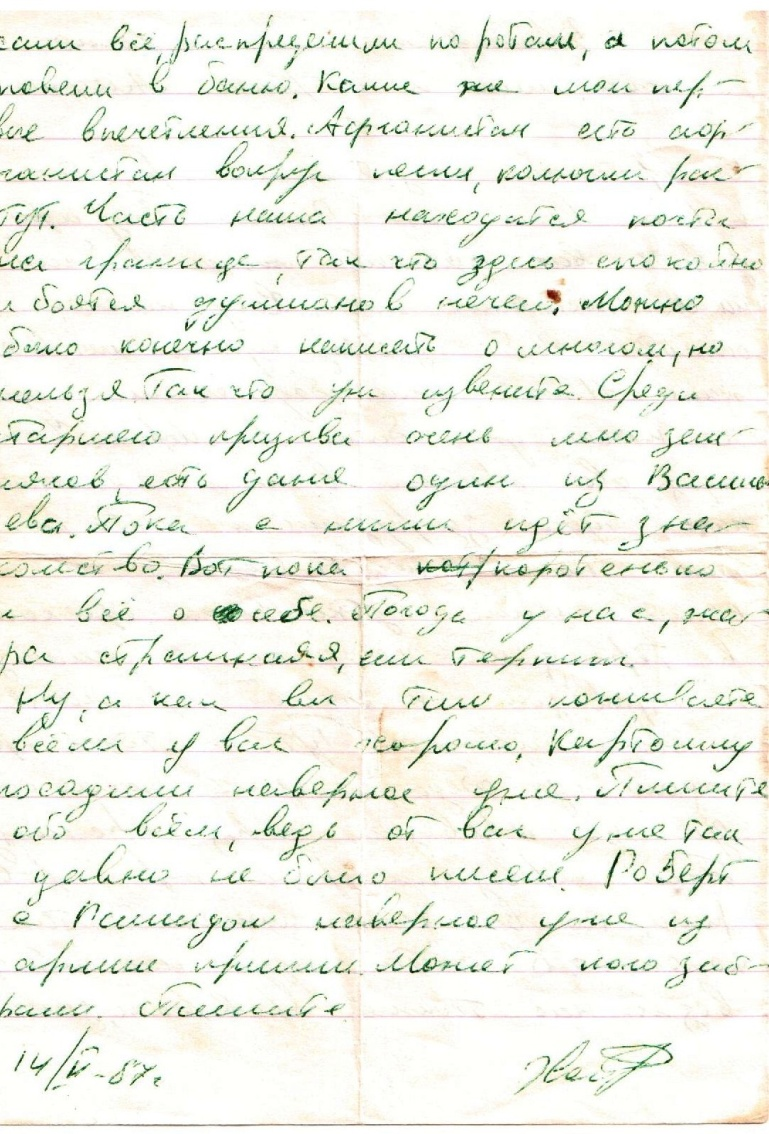 сали всё, распределили по ротам, а потом
повели в баню. Какие же мои пер-
вые впечетления. Афганистан есть аф-
ганистан вокруг пески, колючки рас-
тут. Часть наша находится почти
на границе, так что здесь спокойно
и боятся душманов нечего. Можно
было конечно написать о многом, но
нельзя. Так что уж извените. Среди
старшего призыва очень мно зем-
ляков, есть даже один из
ева. Пока с ними идёт зна-
комство. Вот пока коротенько
и всё о себе. Погода у нас, жа-
ра страшная, терпим.
Ну, а как вы там поживаете
всем у вас хорошо, картошку
посадили наверное уже. Пишите
обо всём, ведь от вас уже так
давно не было писем. Роберт
с Рашидом наверное уже из
армии пришли. Может кого заб-
рали. Пишите
14/V-87г.